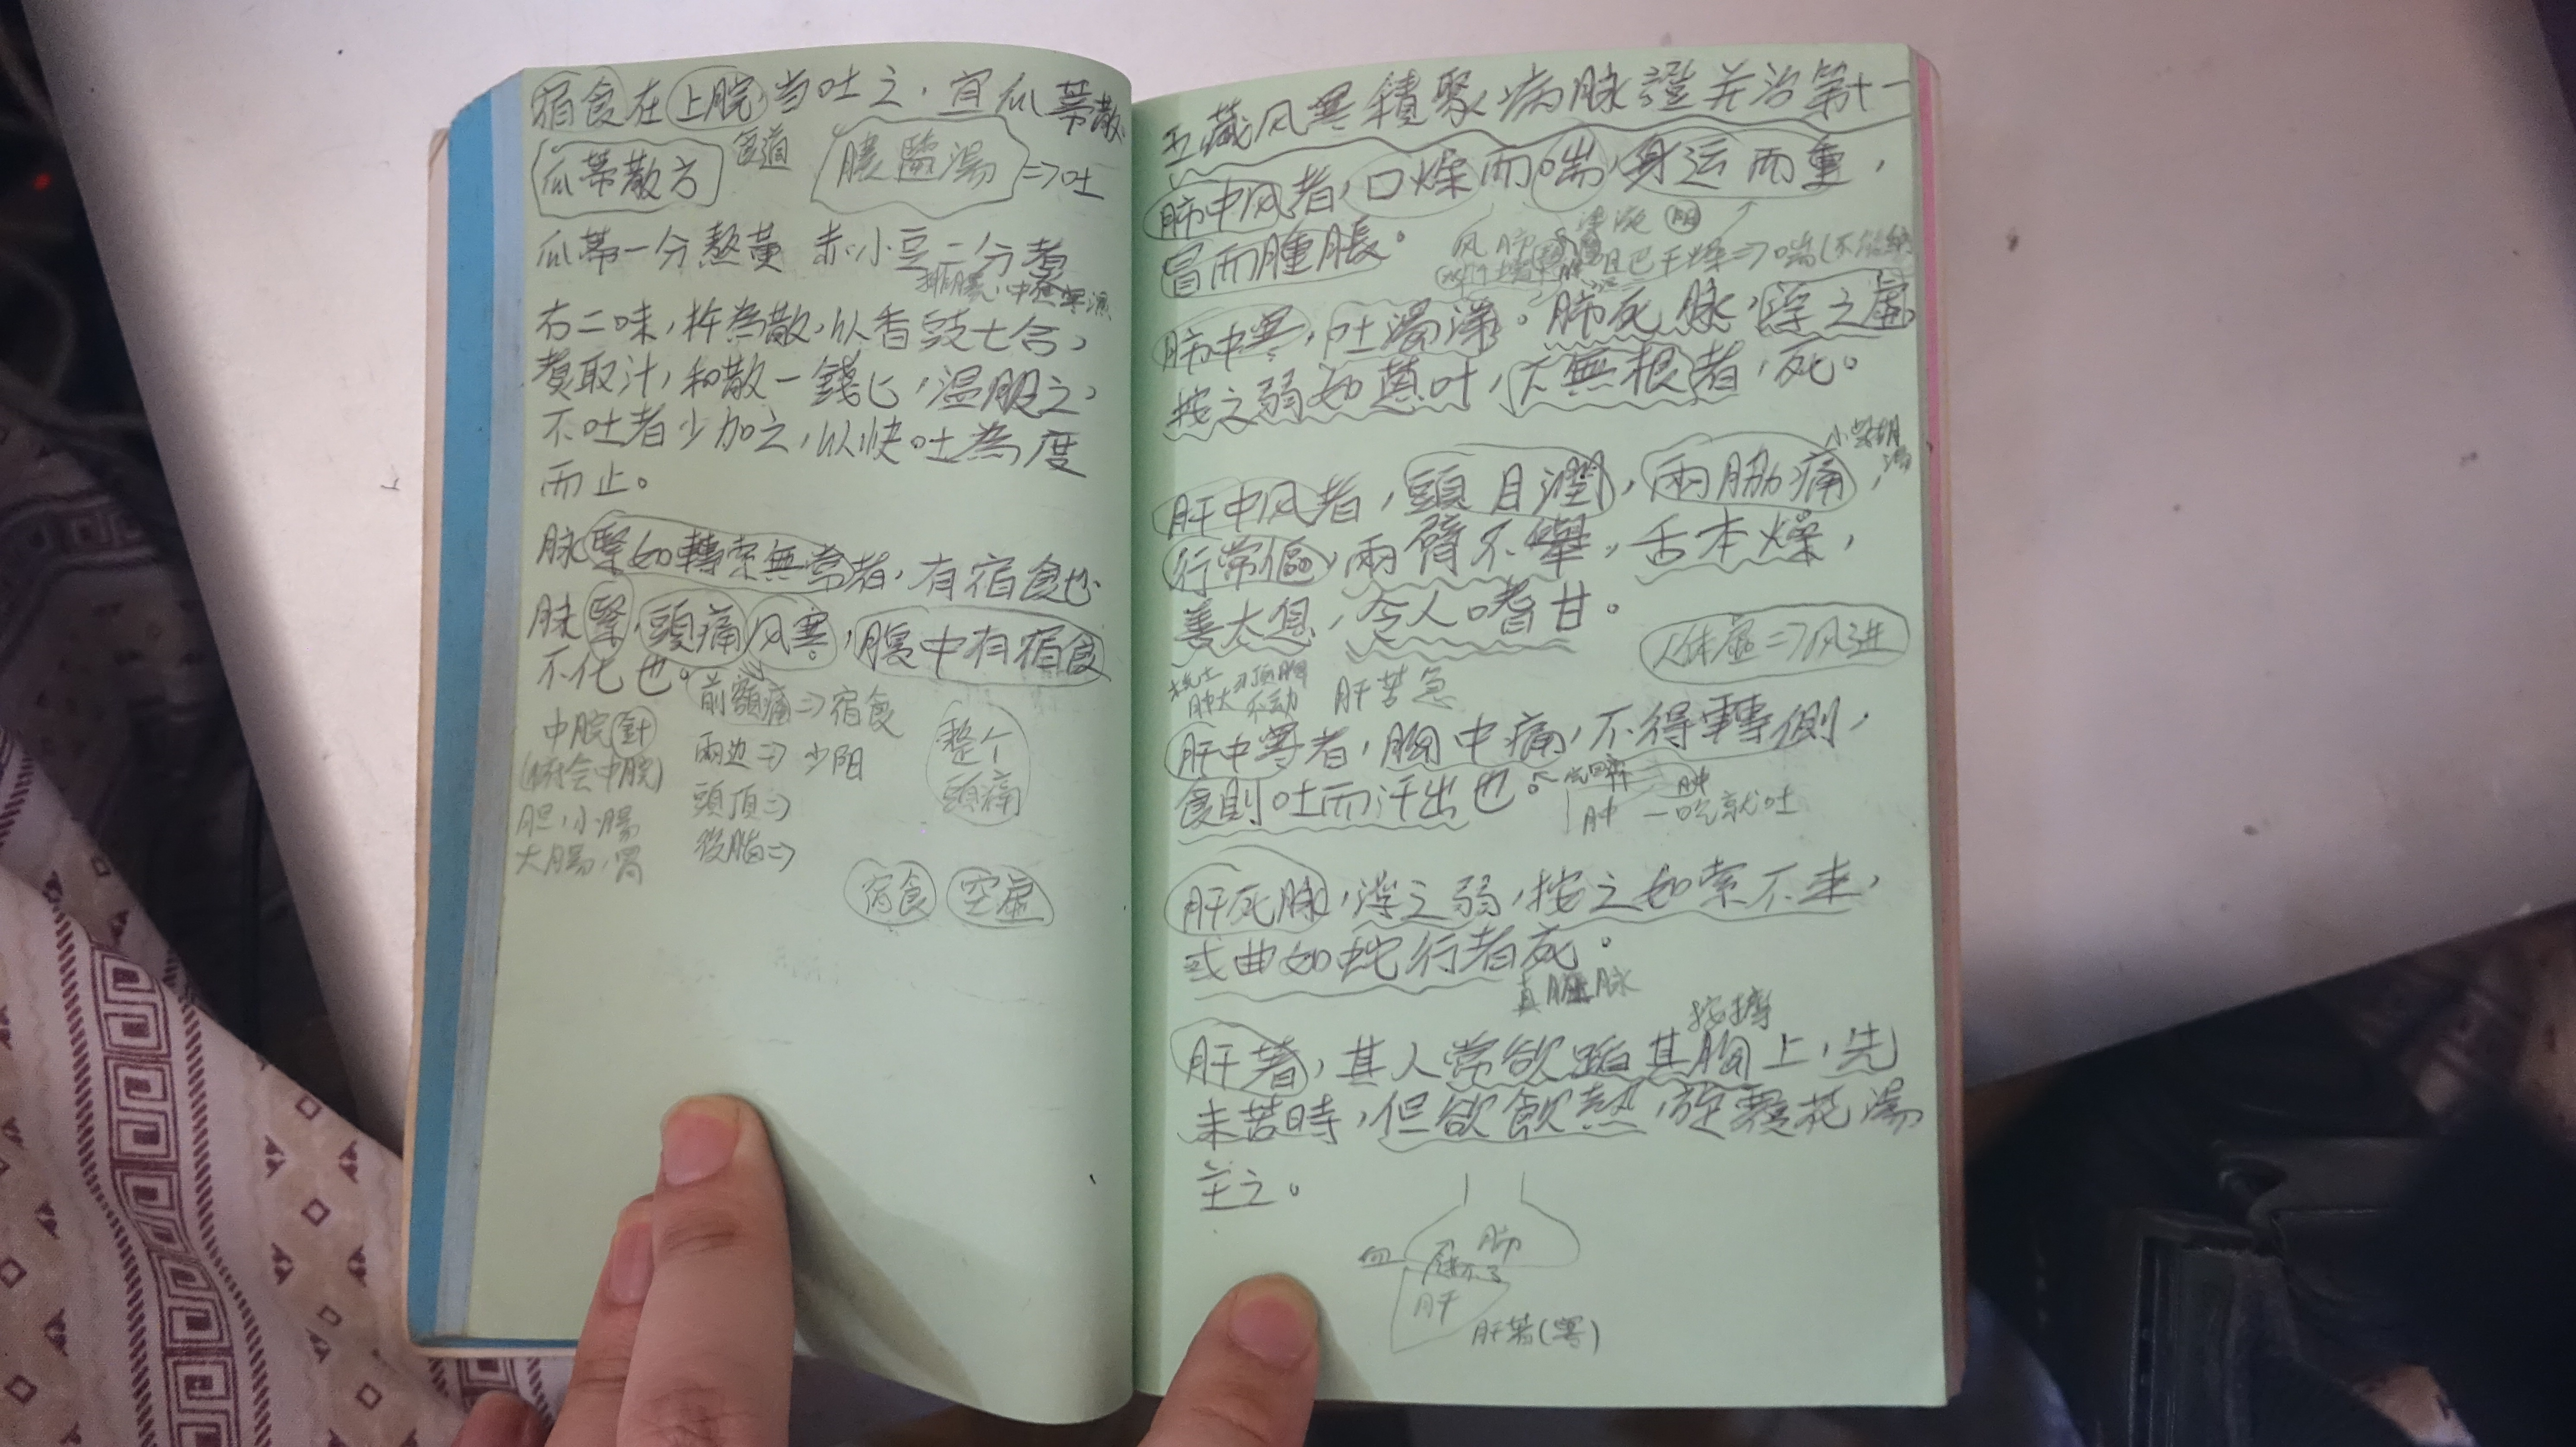 宿食在上脘,当吐之,宜瓜蒂散
食道
瓜蒂散方
鹽湯 => 吐
瓜蒂一分熬黃 赤小豆二分煮
右二味,杵為散,以香豉七合,
煮取汁,和散一錢匕,温服之,
不吐者少加之,以快吐為度
而止。
脉緊如轉索無常者,有宿食也
脉緊,頭痛风寒,腹中有宿食
不化也。
前額痛=>宿食
兩边=>少阳
頭頂=>
後腦=>
整个
頭痛
中脘針
(腑会中脘)
胆,小腸
大腸,胃
宿食 空虛
五藏风寒積聚病脉證并治第十一
肺中风者,口燥而喘,身运而重,
冒而腫脹。
肺中寒,吐濁涕。肺死脉,浮之虛
按之弱如葱叶,下無根者,死。
小柴胡
湯
肝中风者,頭目瞤,兩脇痛,
行常傴,兩臂不舉,舌本燥,
善太息,令人嗜甘。
人体虛=>风进
肝苦急
肝中寒者,胸中痛,不得轉側,
食則吐而汗出也。
肿 一吃就吐
肝死脉,浮之弱,按之如索不来,
或曲如蛇行者死。
真脏脉
按摩
肝著,其人常欲蹈其胸上,先
未苦時,但欲飲熱,旋覆花湯
主之。
肺
肝
肝著(寒)